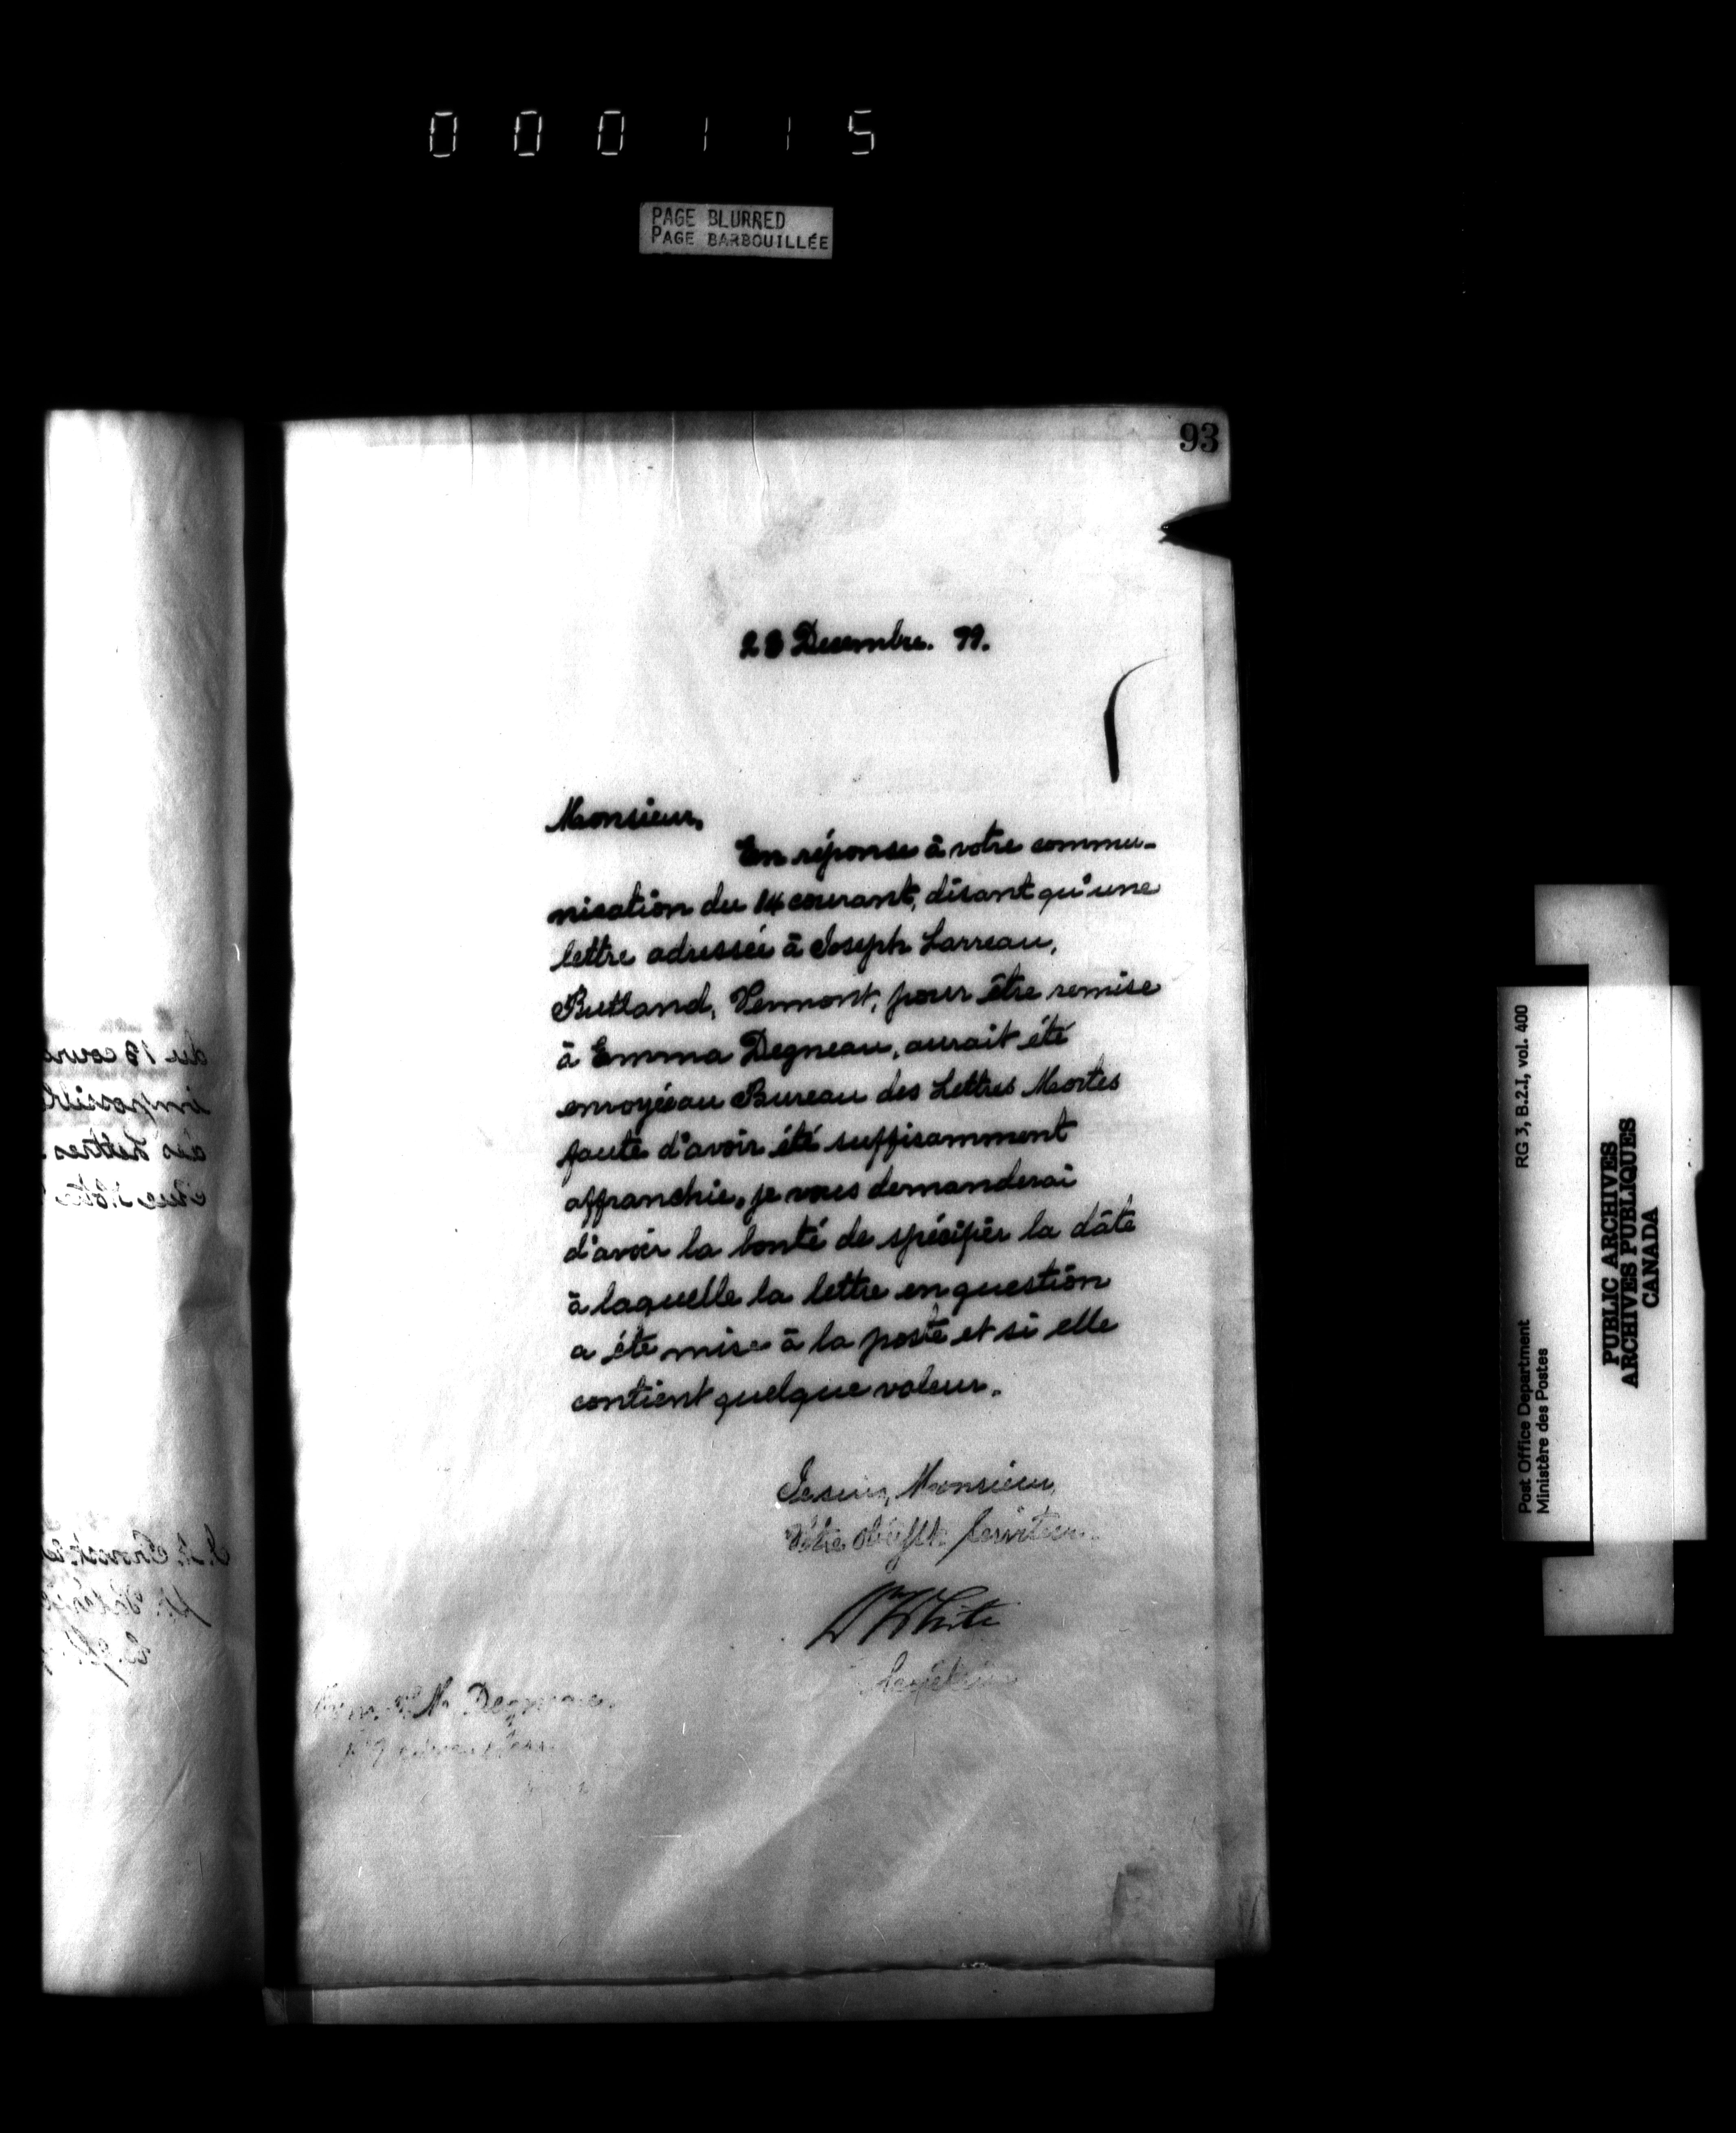 0 0 0 1 1 5
PAGE BLURRED
PAGE BARBOUILLÉE
93
23 Decembre. 99.
Monsieur,
En réponse à votre commu-
nication du 14 courant, disant qu'une
lettre adressée à Joseph Larreau,
Rutland, Vermont, pour être remise
à Emma Degneau, aurait été
envoyée au Bureau des Lettres Mortes
faute d'avoir été suffisamment
affranchie, je vous demanderai
d'avoir la bonté de spécifier la dâte
à laquelle la lettre en question
a été mise à la poste et si elle
contient quelque valeur.
Je suis, Monsieur,
Votre obéist Serviteur
W White
Degneau
RG 3, B.2.I, vol. 400
Post Office Department
Ministère des Postes
PUBLIC ARCHIVES
ARCHIVES PUBLIQUES
CANADA